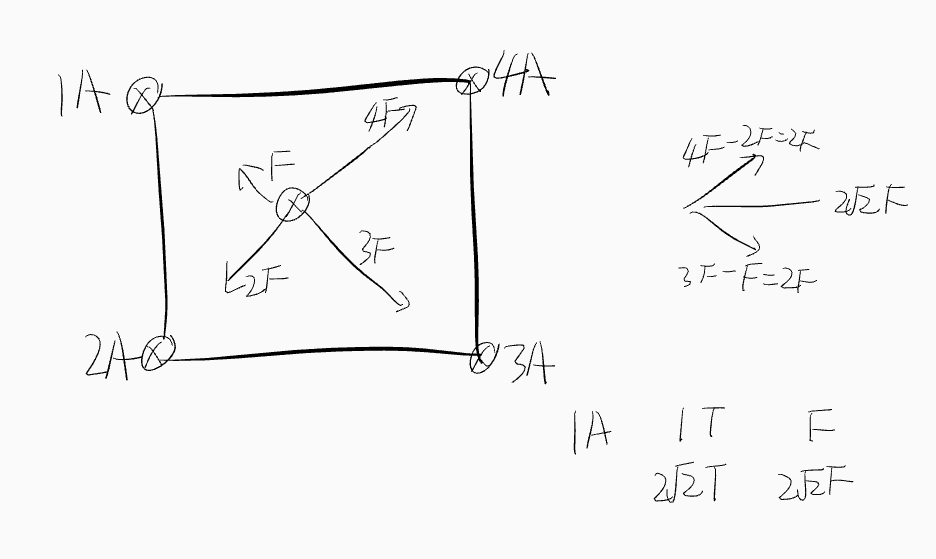 1A
4A
4F
F
3F
2F
2A
3A
4F-2F=2F
2√2F
3F-F=2F
1A 1T F
2√2T 2√2F